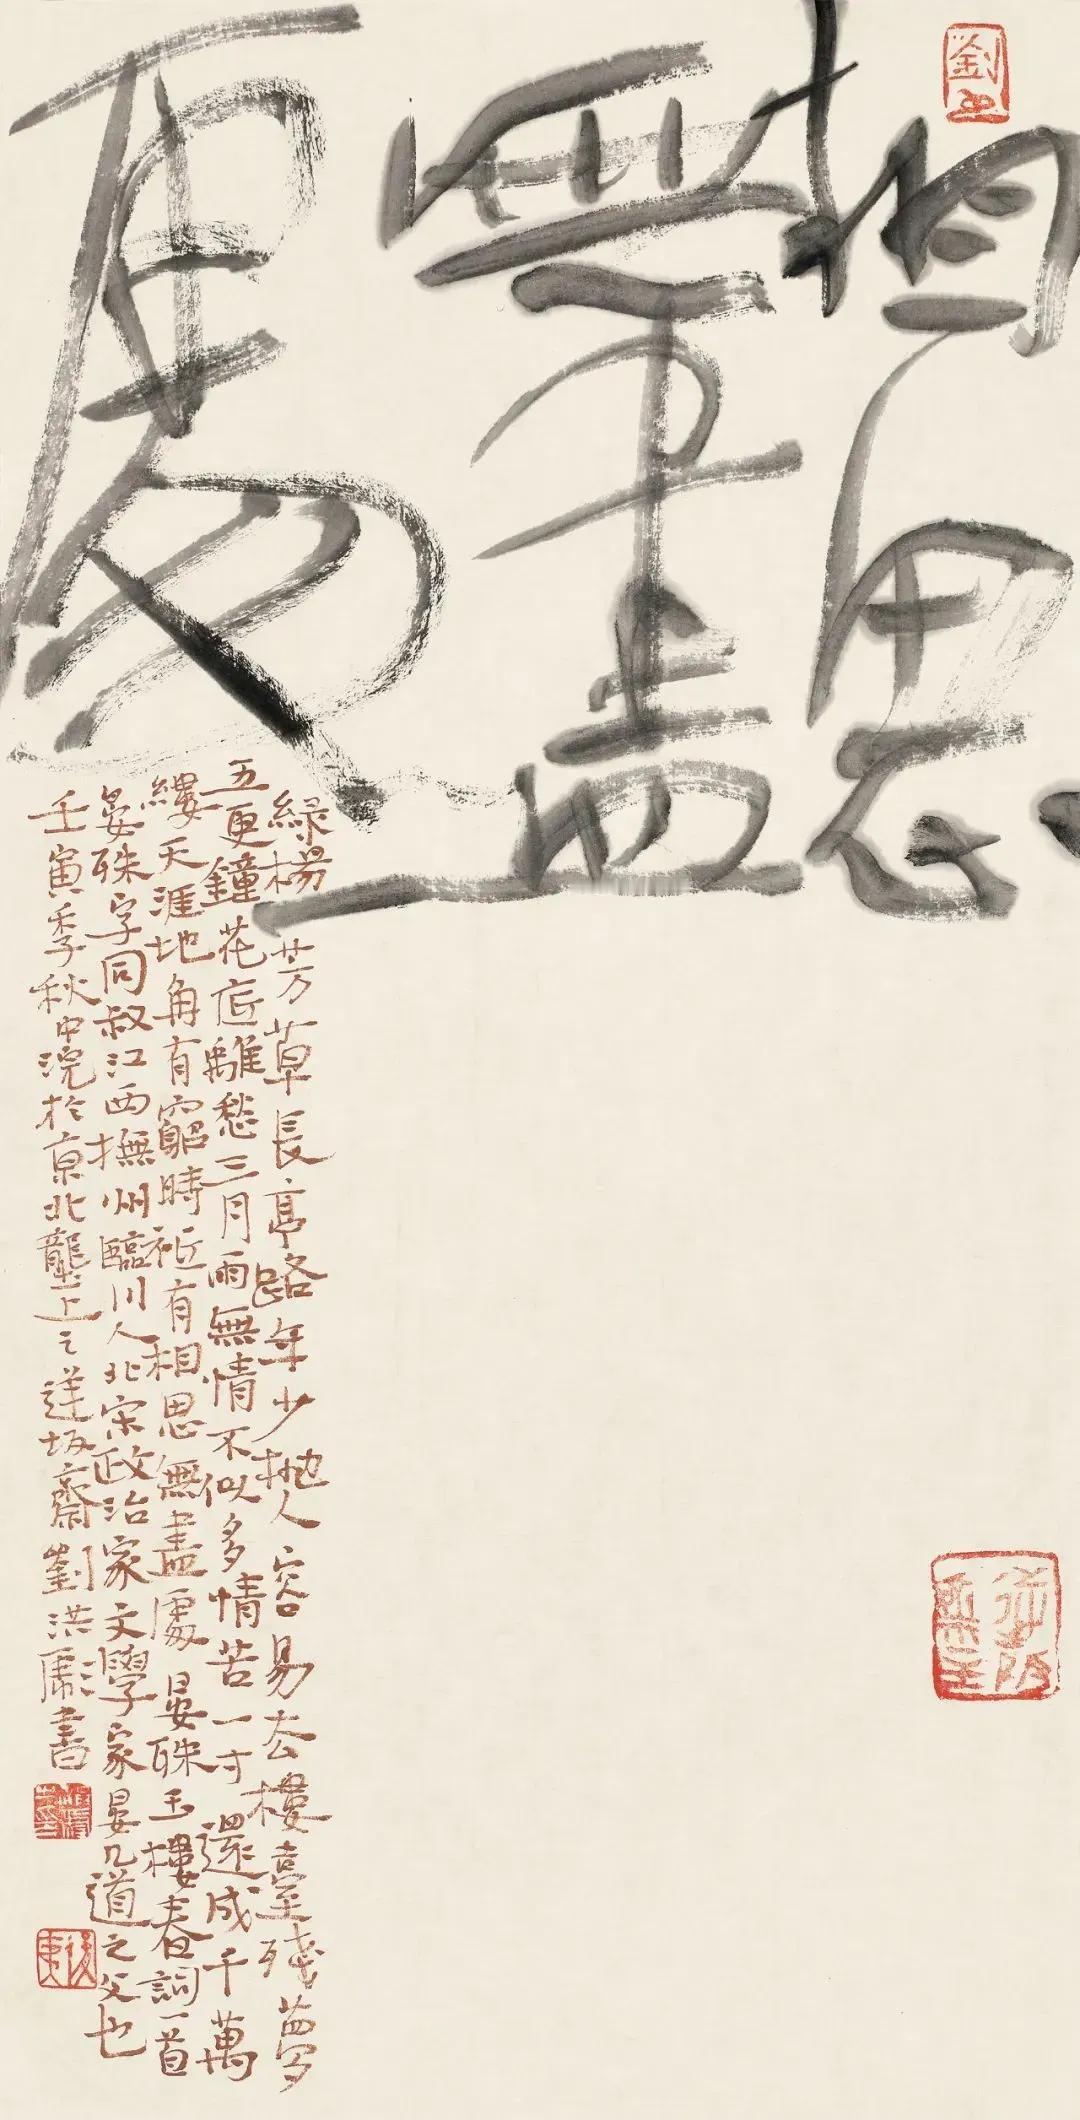 相思
無盡
處
綠楊芳草長亭路年少抛人容易去樓臺殘夢
五更鐘花底離愁三月雨無情不似多情苦一寸還成千萬
縷天涯地角有窮時祗有相思無盡處 晏殊玉樓春詞一首
晏殊字同叔江西撫州臨川人北宋政治家文學家晏几道之父也
壬寅季秋中浣於京北壟上之逆坂齋劉洪彪書
劉